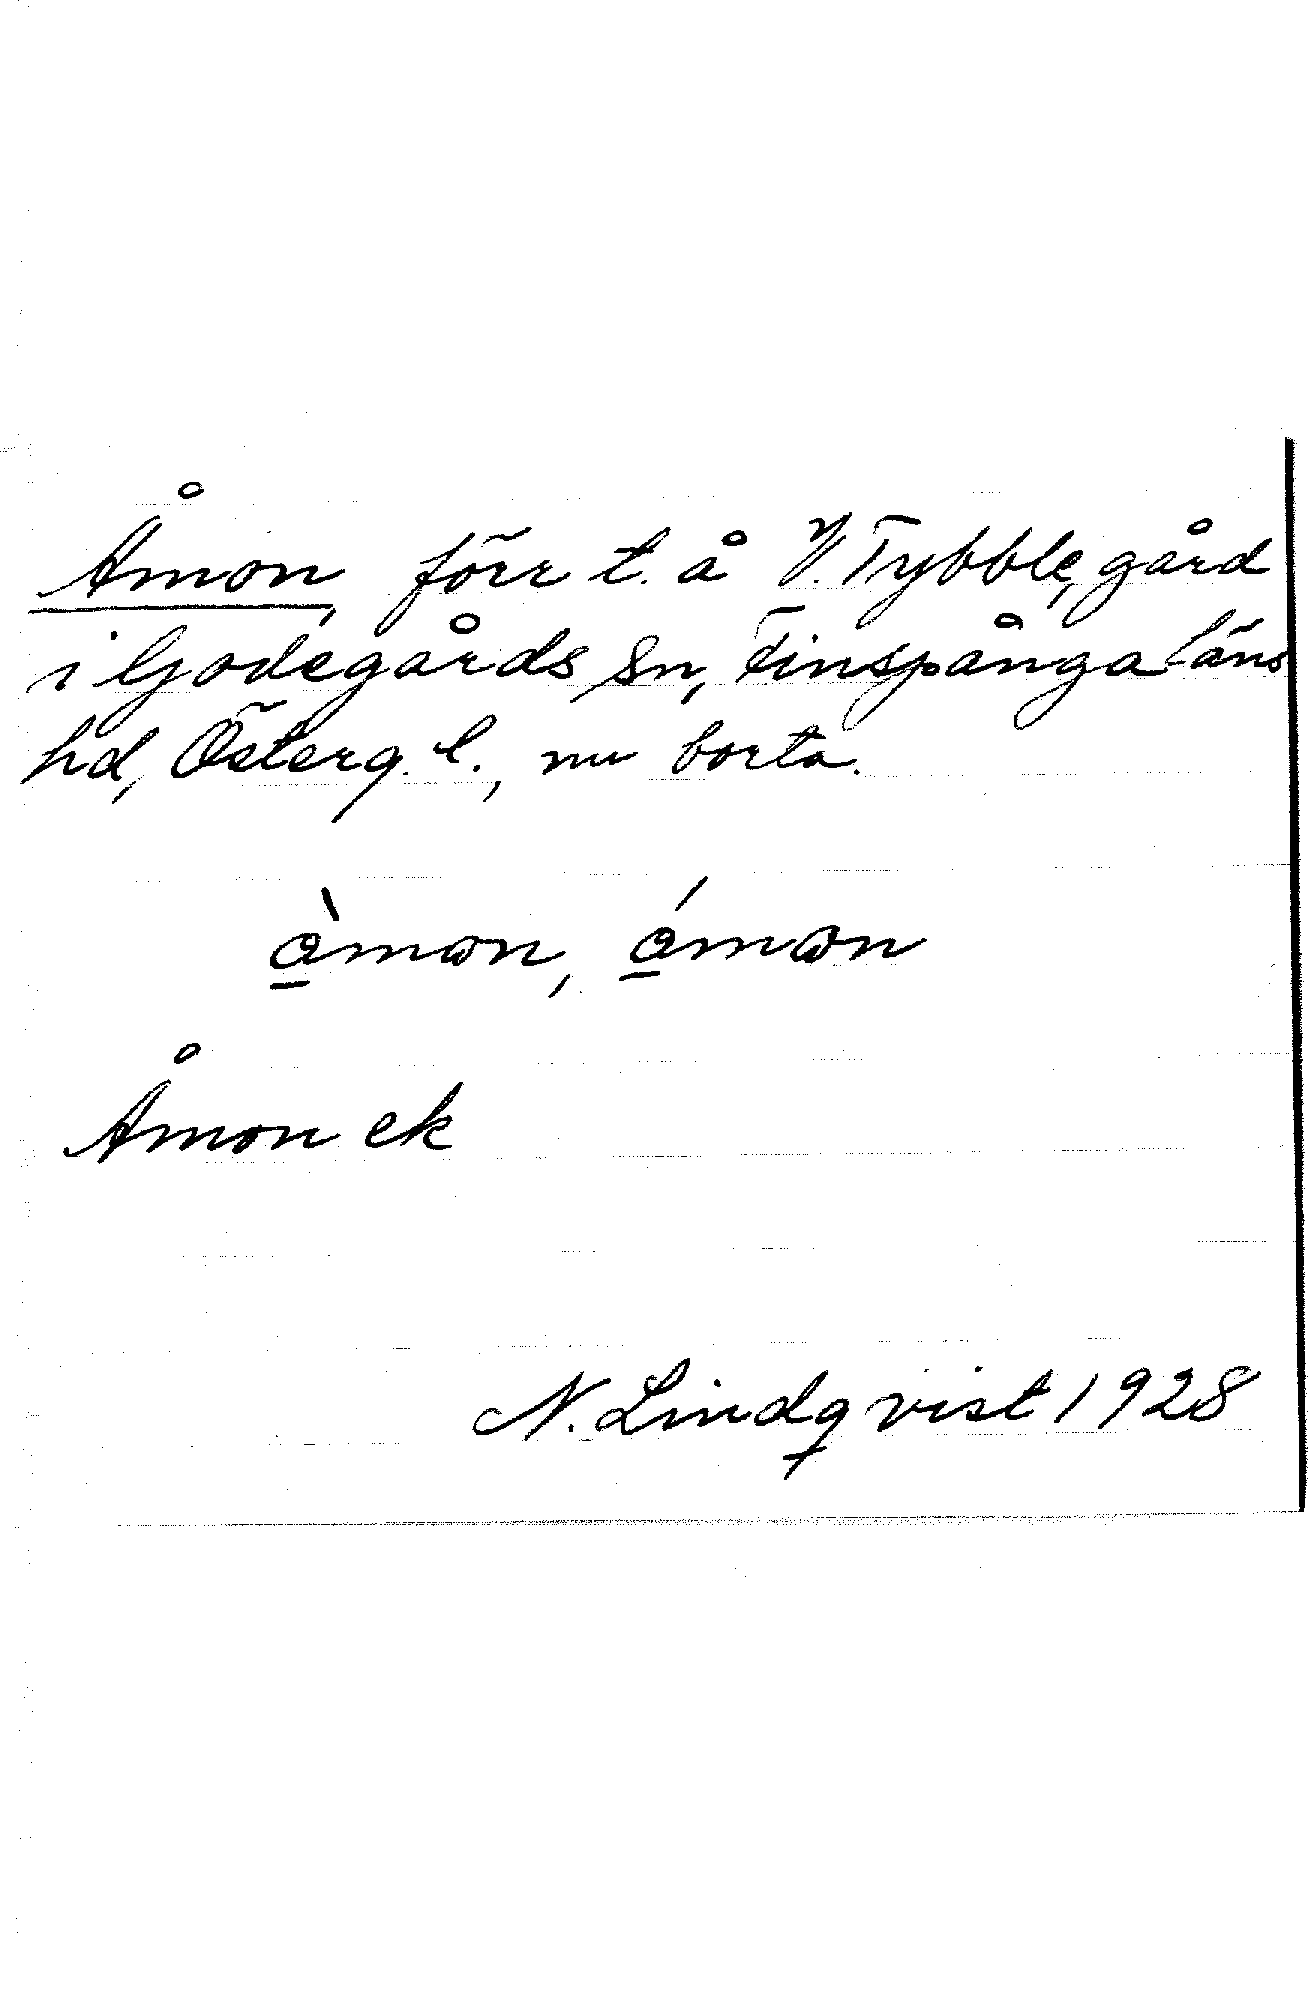 Åmon, förr t. å V. Tybble, gård
i Godegårds sn, Finspånga läns
hd, Österg. l., nu borta.
å̱̀mɷn, ǻ̱mɷn
Åmon ek
N. Lindqvist 1928